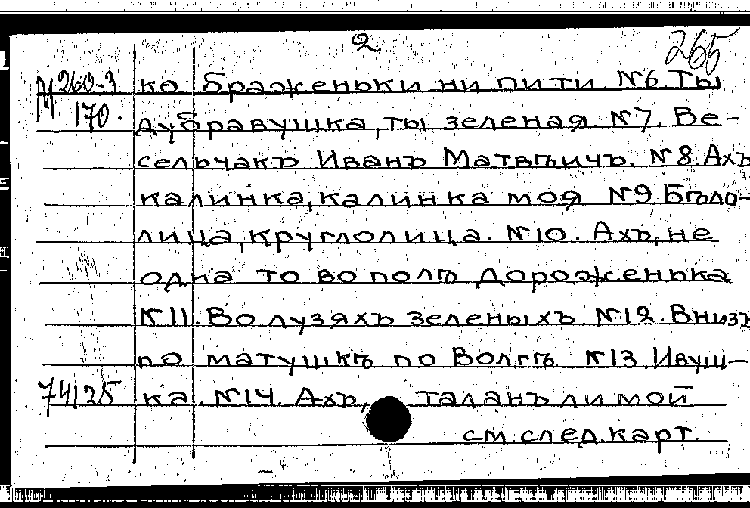 2
265
М 260-3 ко браженьки ни пити №6. Ты
170. дубравушка, ты зеленая №7. Ве-
сельчакъ Иванъ Матвѣичъ. №8. Ахъ
калинка, калинка моя №9 Бѣло-
лица, круглолица. №10. Ахъ, не
одна то во полѣ дороженька
№11. Во лузяхъ зеленыхъ №12. Внизъ
по матушкѣ по Волгѣ №13. Ивуш-
74125 ка. №14. Ахъ, таланъ ли мой
см. след. карт.